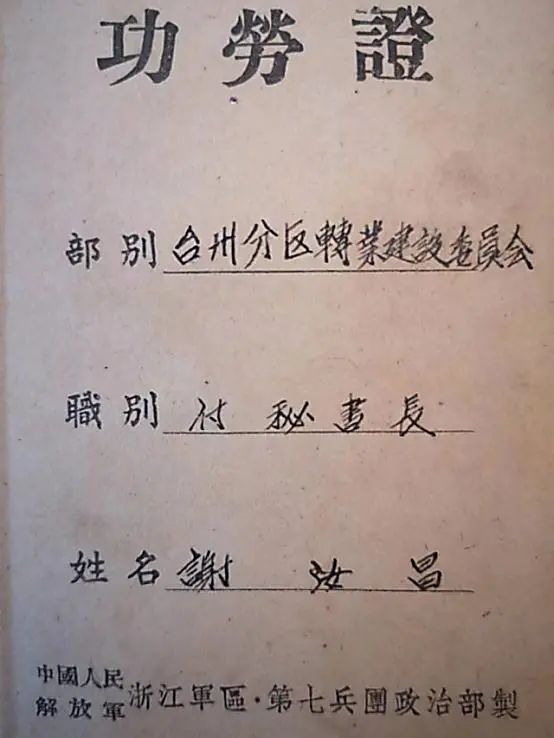 功勞證
部別 台州分区轉業建設委員会
職別 付秘書長
姓名 謝汝昌
中國人民解放軍 浙江軍區·第七兵團政治部製